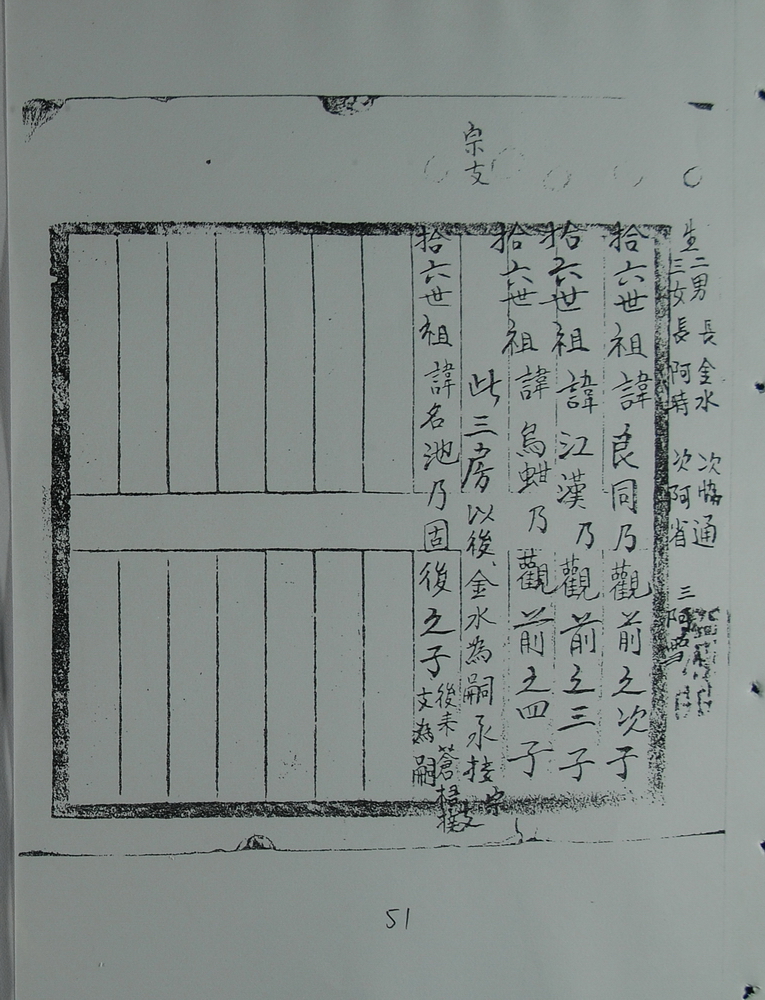 生二男 長金水 次協通
三女 長阿時 次阿省 三阿
拾六世祖諱良同乃觀前之次子
拾六世祖諱江漢乃觀前之三子
拾六世祖諱烏蚶乃觀前之四子
此三房以後金水為嗣承接宗支
宗支
拾六世祖諱名池乃固後之子
後來蒼梧
文為嗣
51